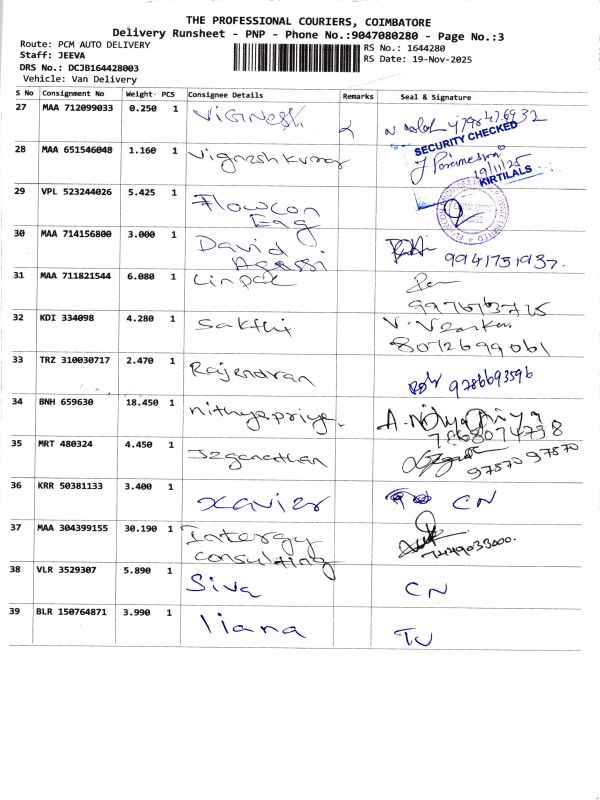 THE PROFESSIONAL COURIERS, COIMBATORE
Delivery Runsheet - PNP - Phone No.:9047080280 - Page No.:3
Route: PCM AUTO DELIVERY
RS No.: 1644280
Staff: JEEVA
RS Date: 19-Nov-2025
DRS No.: DCJB164428003
Vehicle: Van Delivery
S No Consignment No Weight PCS Consignee Details Remarks Seal & Signature
27 MAA 712099033 0.250 1 Vignesh
SECURITY CHECKED
28 MAA 651546048 1.160 1 Vignesh Kumar
19/11/25
KIRTILALS
29 VPL 523244026 5.425 1 Flowcon
Eng
30 MAA 714156800 3.000 1 David
Agassi 9941731937.
31 MAA 711821544 6.080 1 Linpac
32 KDI 334098 4.280 1 Sakthi
8072699061
33 TRZ 310030717 2.470 1 Rajendran 9786693596
34 BNH 659630 18.450 1 nithyapriya. A. Nithya Priya
7868074738
35 MRT 480324 4.450 1 Jeganathan
97870 97870
36 KRR 50381133 3.400 1 xavier CN
37 MAA 304399155 30.190 1 Intergy
consulting
38 VLR 3529307 5.890 1 Siva CN
39 BLR 150764871 3.990 1 liana TU